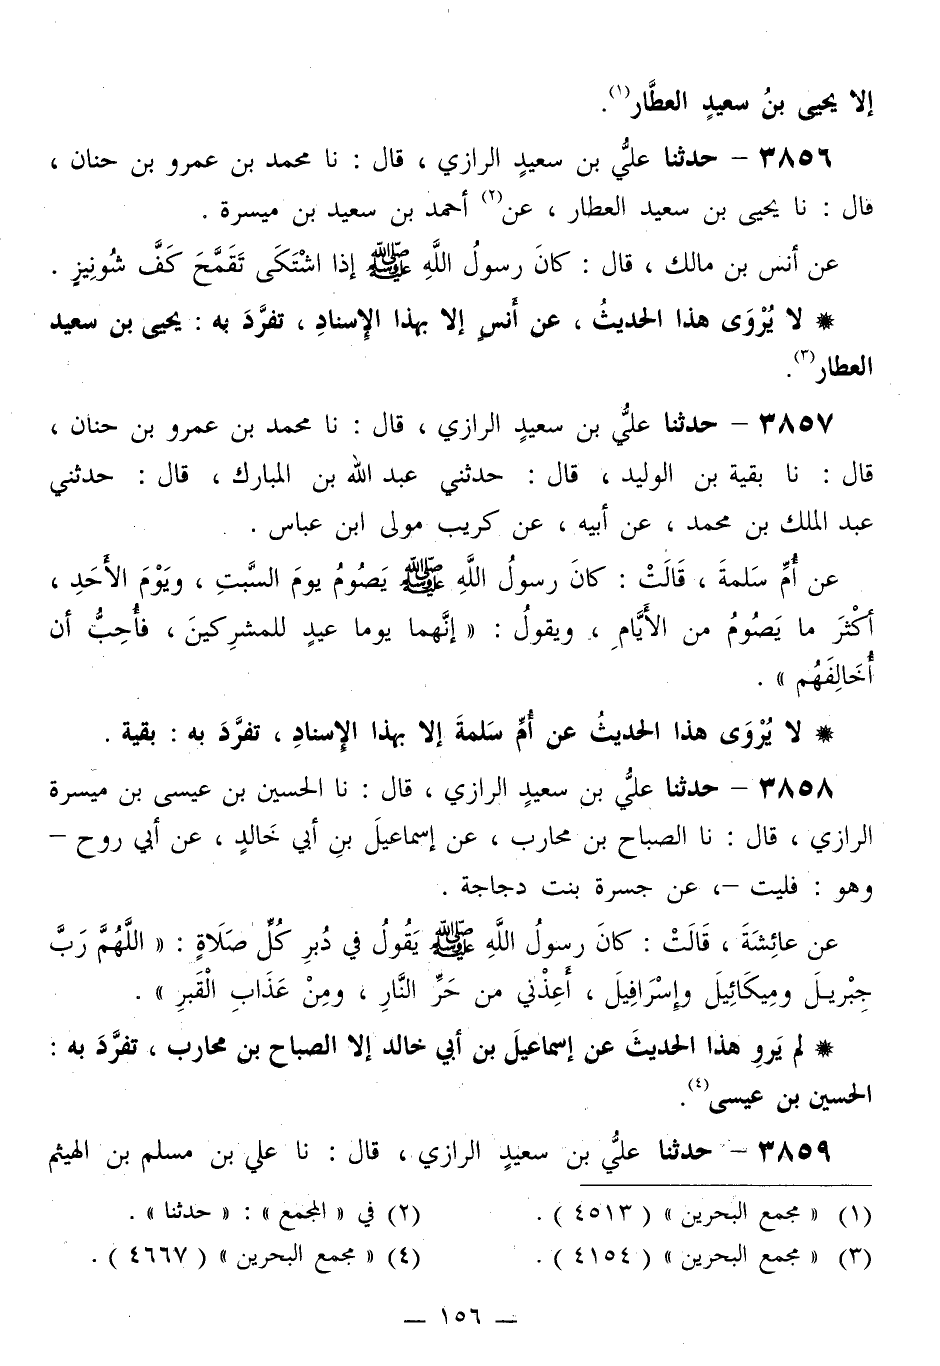 إلا يحيى بنُ سعيدٍ العطَّار(١).
٣٨٥٦ – حدثنا عليُّ بن سعيدٍ الرازي ، قال : نا محمد بن عمرو بن حنان ،
قال : نا يحيى بن سعيد العطار ، عن(٢) أحمد بن سعيد بن ميسرة .
عن أنس بن مالك ، قال : كانَ رسولُ اللَّهِ ﷺ إذا اشْتَكَى تَقَمَّحَ كَفَّ شُونِيزٍ .
* لا يُرْوَى هذا الحديثُ ، عن أَنسٍ إلا بهذا الإِسنادِ ، تفرَّدَ به : يحيى بن سعيد
العطار(٣).
٣٨٥٧ – حدثنا عليُّ بن سعيدٍ الرازي ، قال : نا محمد بن عمرو بن حنان ،
قال : نا بقية بن الوليد ، قال : حدثني عبد الله بن المبارك ، قال : حدثني
عبد الملك بن محمد ، عن أبيه ، عن كريب مولى ابن عباس .
عن أُمِّ سَلمةَ ، قَالَتْ : كانَ رسولُ اللَّهِ ﷺ يَصُومُ يومَ السَّبتِ ، ويَوْمَ الأَحَدِ ،
أكْثرَ ما يَصُومُ من الأَيَّامِ ، ويقولُ : « إنَّهما يوما عيدٍ للمشرِكينَ ، فأُحِبُّ أن
أُخَالِفَهُم » .
* لا يُرْوَى هذا الحديثُ عن أُمِّ سَلمةَ إلا بهذا الإِسنادِ ، تفرَّدَ به : بقية .
٣٨٥٨ – حدثنا عليُّ بن سعيدٍ الرازي ، قال : نا الحسين بن عيسى بن ميسرة
الرازي ، قال : نا الصباح بن محارب ، عن إسماعيلَ بنِ أبي خالدٍ ، عن أبي روح –
وهو : فليت –، عن جسرة بنت دجاجة .
عن عائِشَةَ ، قَالَتْ : كانَ رسولُ اللَّهِ ﷺ يَقُولُ في دُبرِ كُلِّ صَلَاةٍ : « اللَّهُمَّ رَبَّ
جِبْريلَ ومِيكَائِيلَ وإسْرَافِيلَ ، أَعِذْني من حَرِّ النَّارِ ، ومِنْ عَذَابِ الْقَبرِ » .
* لم يَروِ هذا الحديثَ عن إسماعيلَ بن أبي خالد إلا الصباح بن محارب ، تفرَّدَ به :
الحسين بن عيسى(٤).
٣٨٥٩ – حدثنا عليُّ بن سعيدٍ الرازي ، قال : نا علي بن مسلم بن الهيثم
(١) « مجمع البحرين » ( ٤٥١٣ ) . (٢) في « المجمع » : « حدثنا » .
(٣) « مجمع البحرين » ( ٤١٥٤ ) . (٤) « مجمع البحرين » ( ٤٦٦٧ ) .
— ١٥٦ —